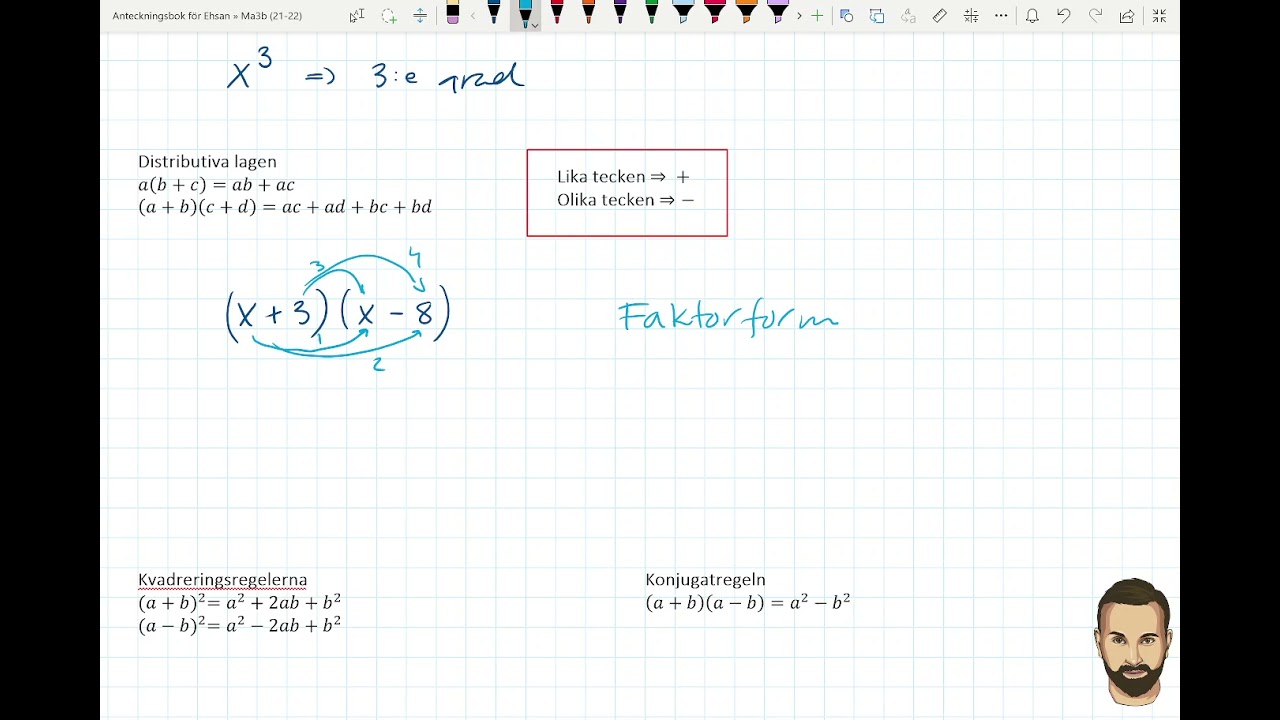 Anteckningsbok för Ehsan » Ma3b (21-22)
x³ => 3:e grad
Distributiva lagen
a(b + c) = ab + ac
(a + b)(c + d) = ac + ad + bc + bd
Lika tecken ⇒ +
Olika tecken ⇒ −
3 4
(x + 3)(x - 8)
1
2
Faktorform
Kvadreringsregelerna
(a + b)²= a² + 2ab + b²
(a − b)²= a² − 2ab + b²
Konjugatregeln
(a + b)(a − b) = a² − b²